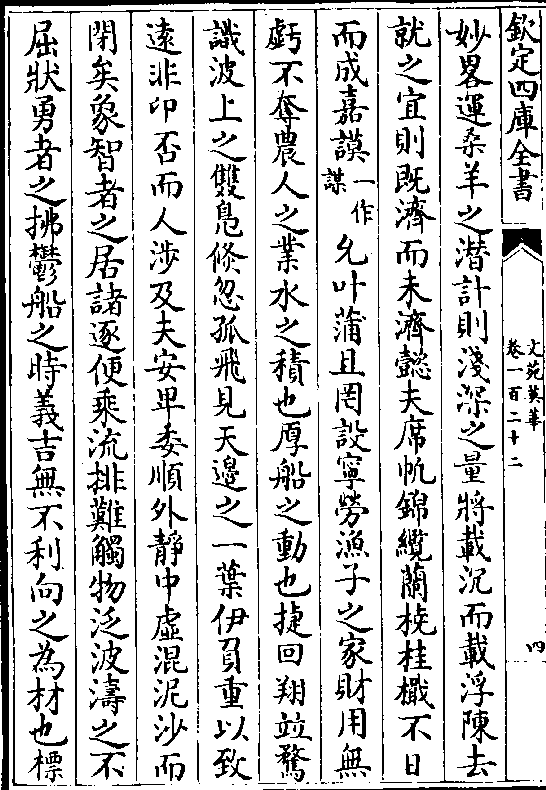 欽定四庫全書
文苑英華
卷一百二十二
四
妙畧運桑羊之潛計則淺深之量將載沉而載浮陳去
就之宜則既濟而未濟懿夫席帆錦纜蘭橈桂檝不日
而成嘉謨一作謀允叶蒲且罔設寧勞漁子之家財用無
虧不奪農人之業水之積也厚船之動也捷回翔竝騖
識波上之雙鳧倐忽孤飛見天邊之一葉伊負重以致
遠非卬否而人涉及夫安卑委順外靜中虛混泥沙而
閉矣象智者之居諸逐便乘流排難觸物泛波濤之不
屈狀勇者之拂鬱船之時義吉無不利向之為材也標